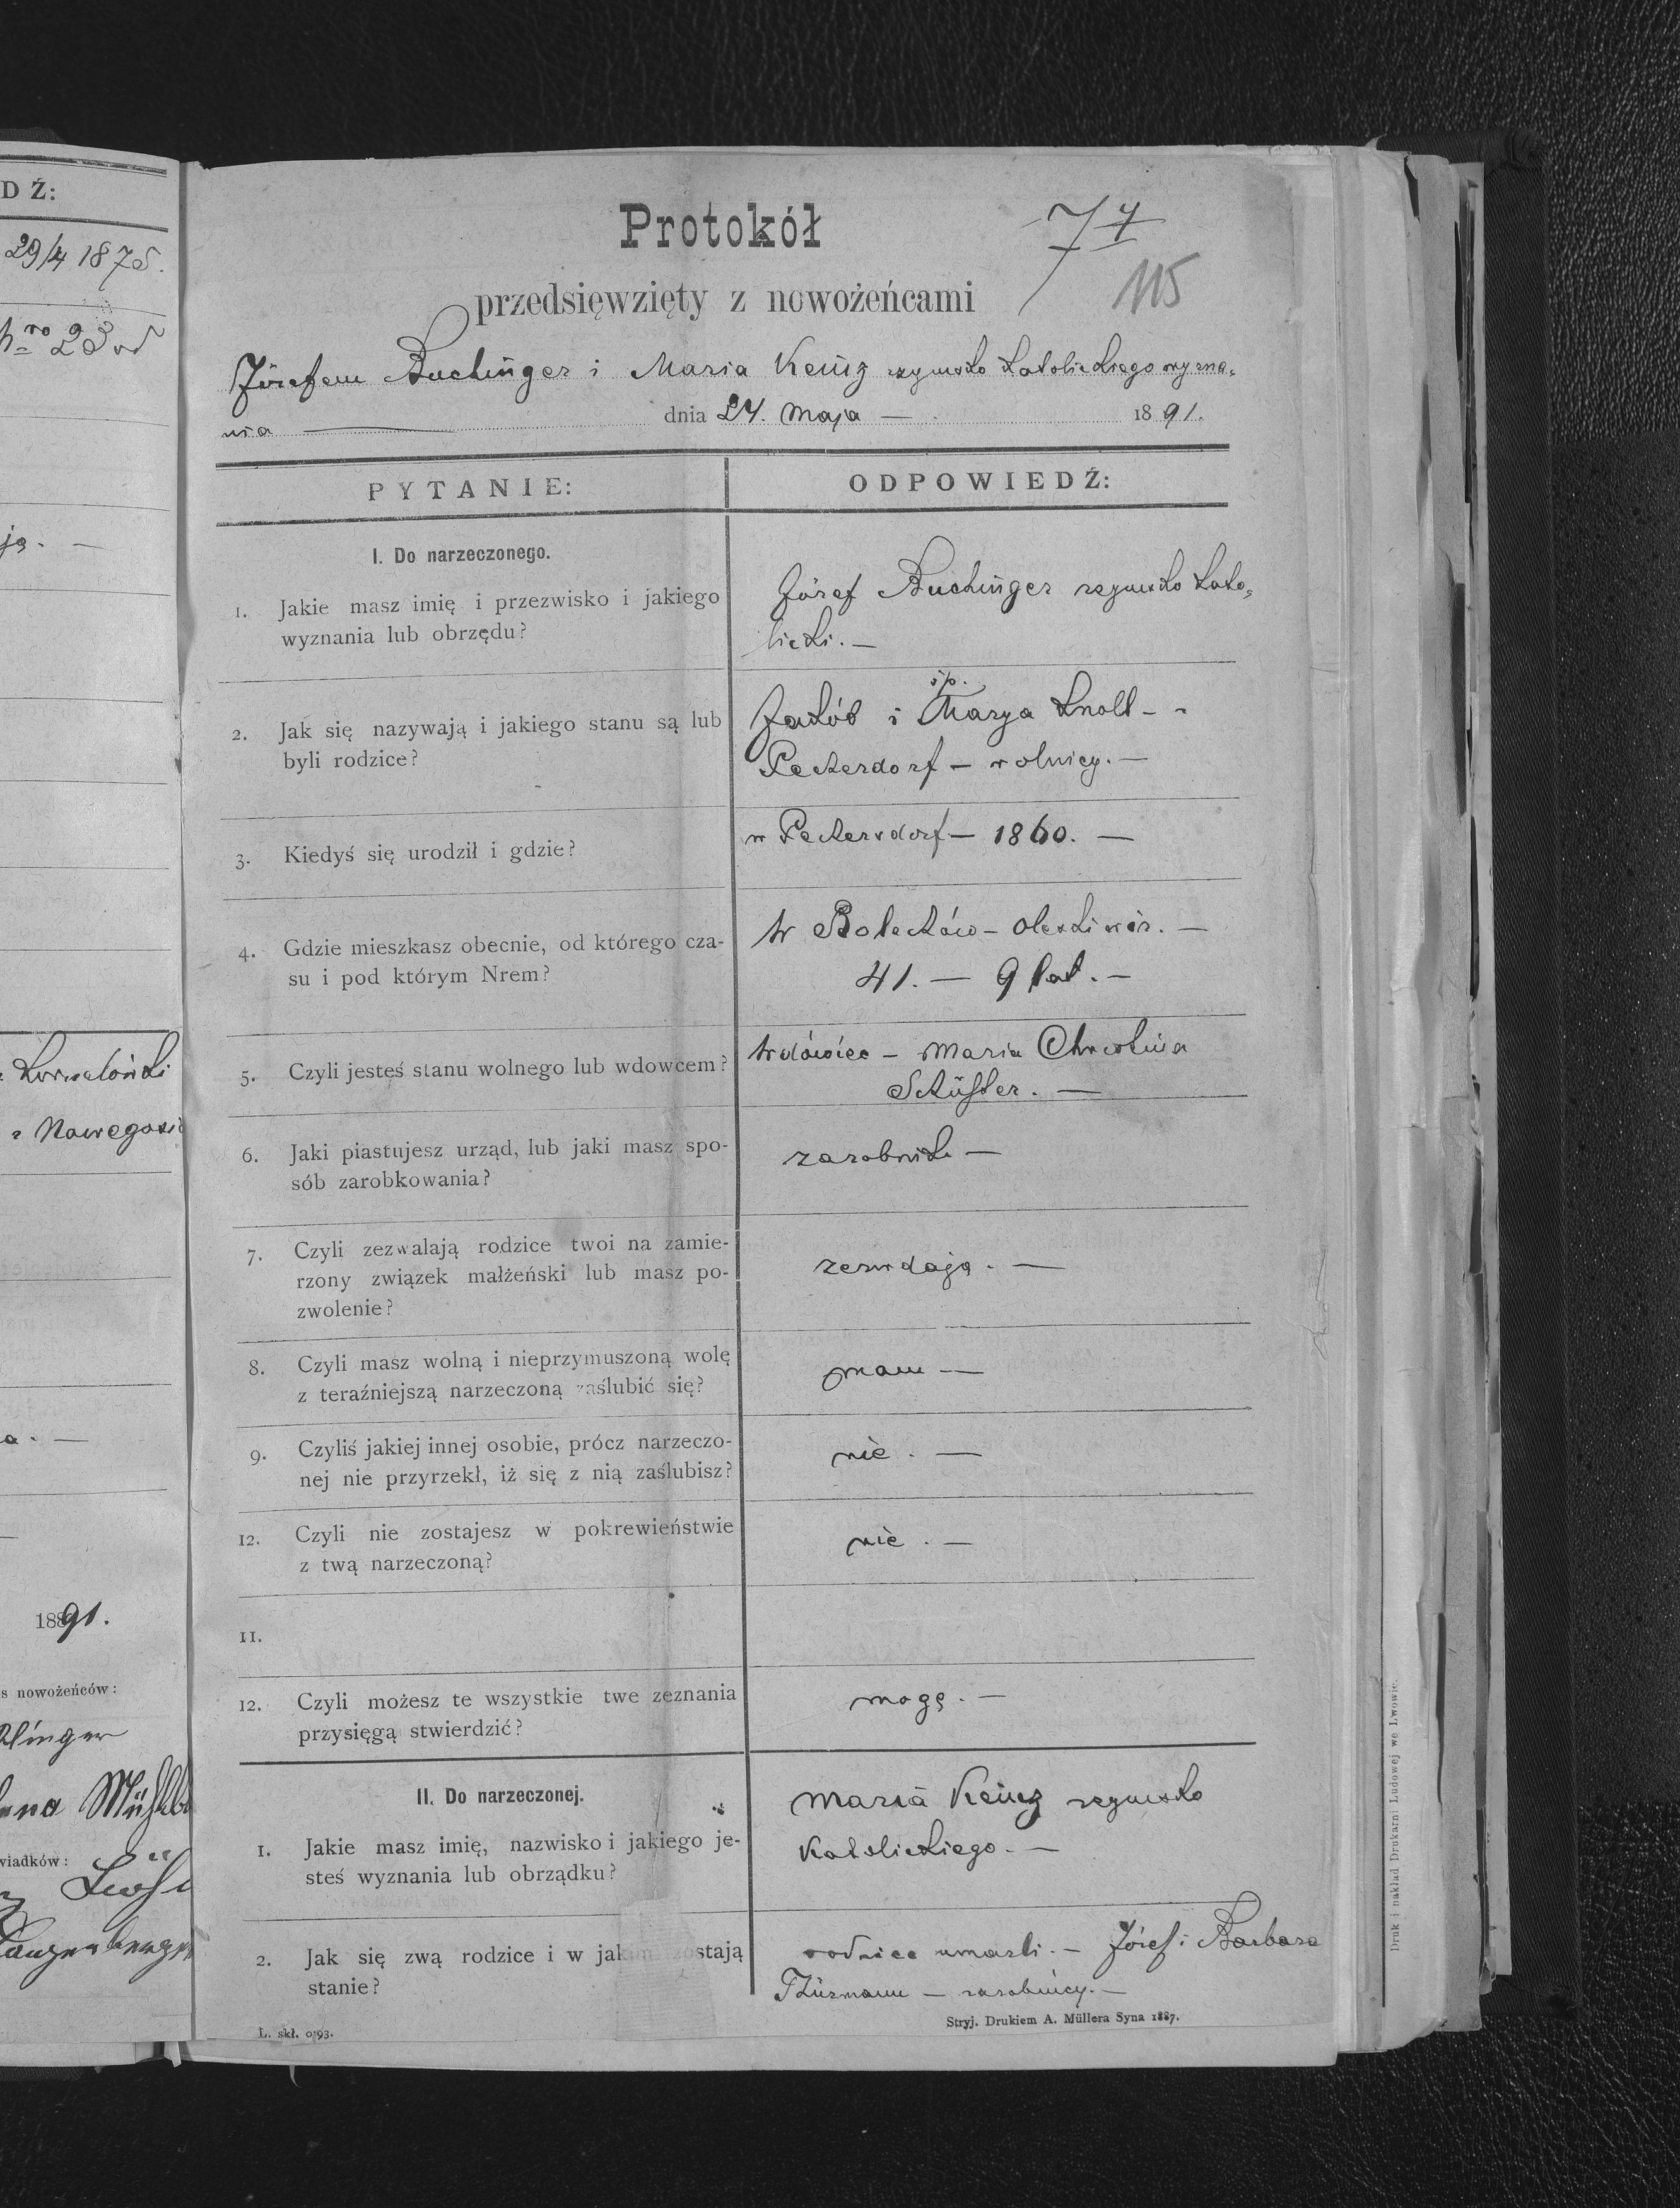 DŹ:
29/4 1875.
ją. —
Nawegosi
1891.
s nowożeńców:
wiadków:
Protokół
74
115
przedsięwzięty z nowożeńcami
Józefem Buchinger i Maria Keinz rzymsko katolickiego wyzna-
nia — dnia 24. Maja — 1891.
PYTANIE:
ODPOWIEDŹ:
I. Do narzeczonego.
1. Jakie masz imię i przezwisko i jakiego
wyznania lub obrzędu?
Józef Buchinger rzymsko kato-
licki. —
2. Jak się nazywają i jakiego stanu są lub
byli rodzice?
Jakób i ś/p. Marya Knoll - -
Peckersdorf — rolnicy. —
3. Kiedyś się urodził i gdzie?
w Peckersdorf — 1860. —
4. Gdzie mieszkasz obecnie, od którego cza-
su i pod którym Nrem?
w Bolechów — —
41. — 9 lat. —
5. Czyli jesteś stanu wolnego lub wdowcem?
wdówiec — Maria
Schüssler. —
6. Jaki piastujesz urząd, lub jaki masz spo-
sób zarobkowania?
zarobnik —
7. Czyli zezwalają rodzice twoi na zamie-
rzony związek małżeński lub masz po-
zwolenie?
zezwalają. —
8. Czyli masz wolną i nieprzymuszoną wolę
z teraźniejszą narzeczoną zaślubić się?
mam —
9. Czyliś jakiej innej osobie, prócz narzeczo-
nej nie przyrzekł, iż się z nią zaślubisz?
nie. —
12. Czyli nie zostajesz w pokrewieństwie
z twą narzeczoną?
nie. —
11.
12. Czyli możesz te wszystkie twe zeznania
przysięgą stwierdzić?
mogę. —
II. Do narzeczonej.
1. Jakie masz imię, nazwisko i jakiego je-
steś wyznania lub obrządku?
Maria Keinz rzymsko
Katolickiego. —
2. Jak się zwą rodzice i w jak stają
stanie?
rodzice umarli. — Józef i Barbara
Thürmann — zarobnicy. —
L. skł. 0/93.
Stryj. Drukiem A. Müllera Syna 1887.
Druk i nakład Drukarni Ludowej we Lwowie.